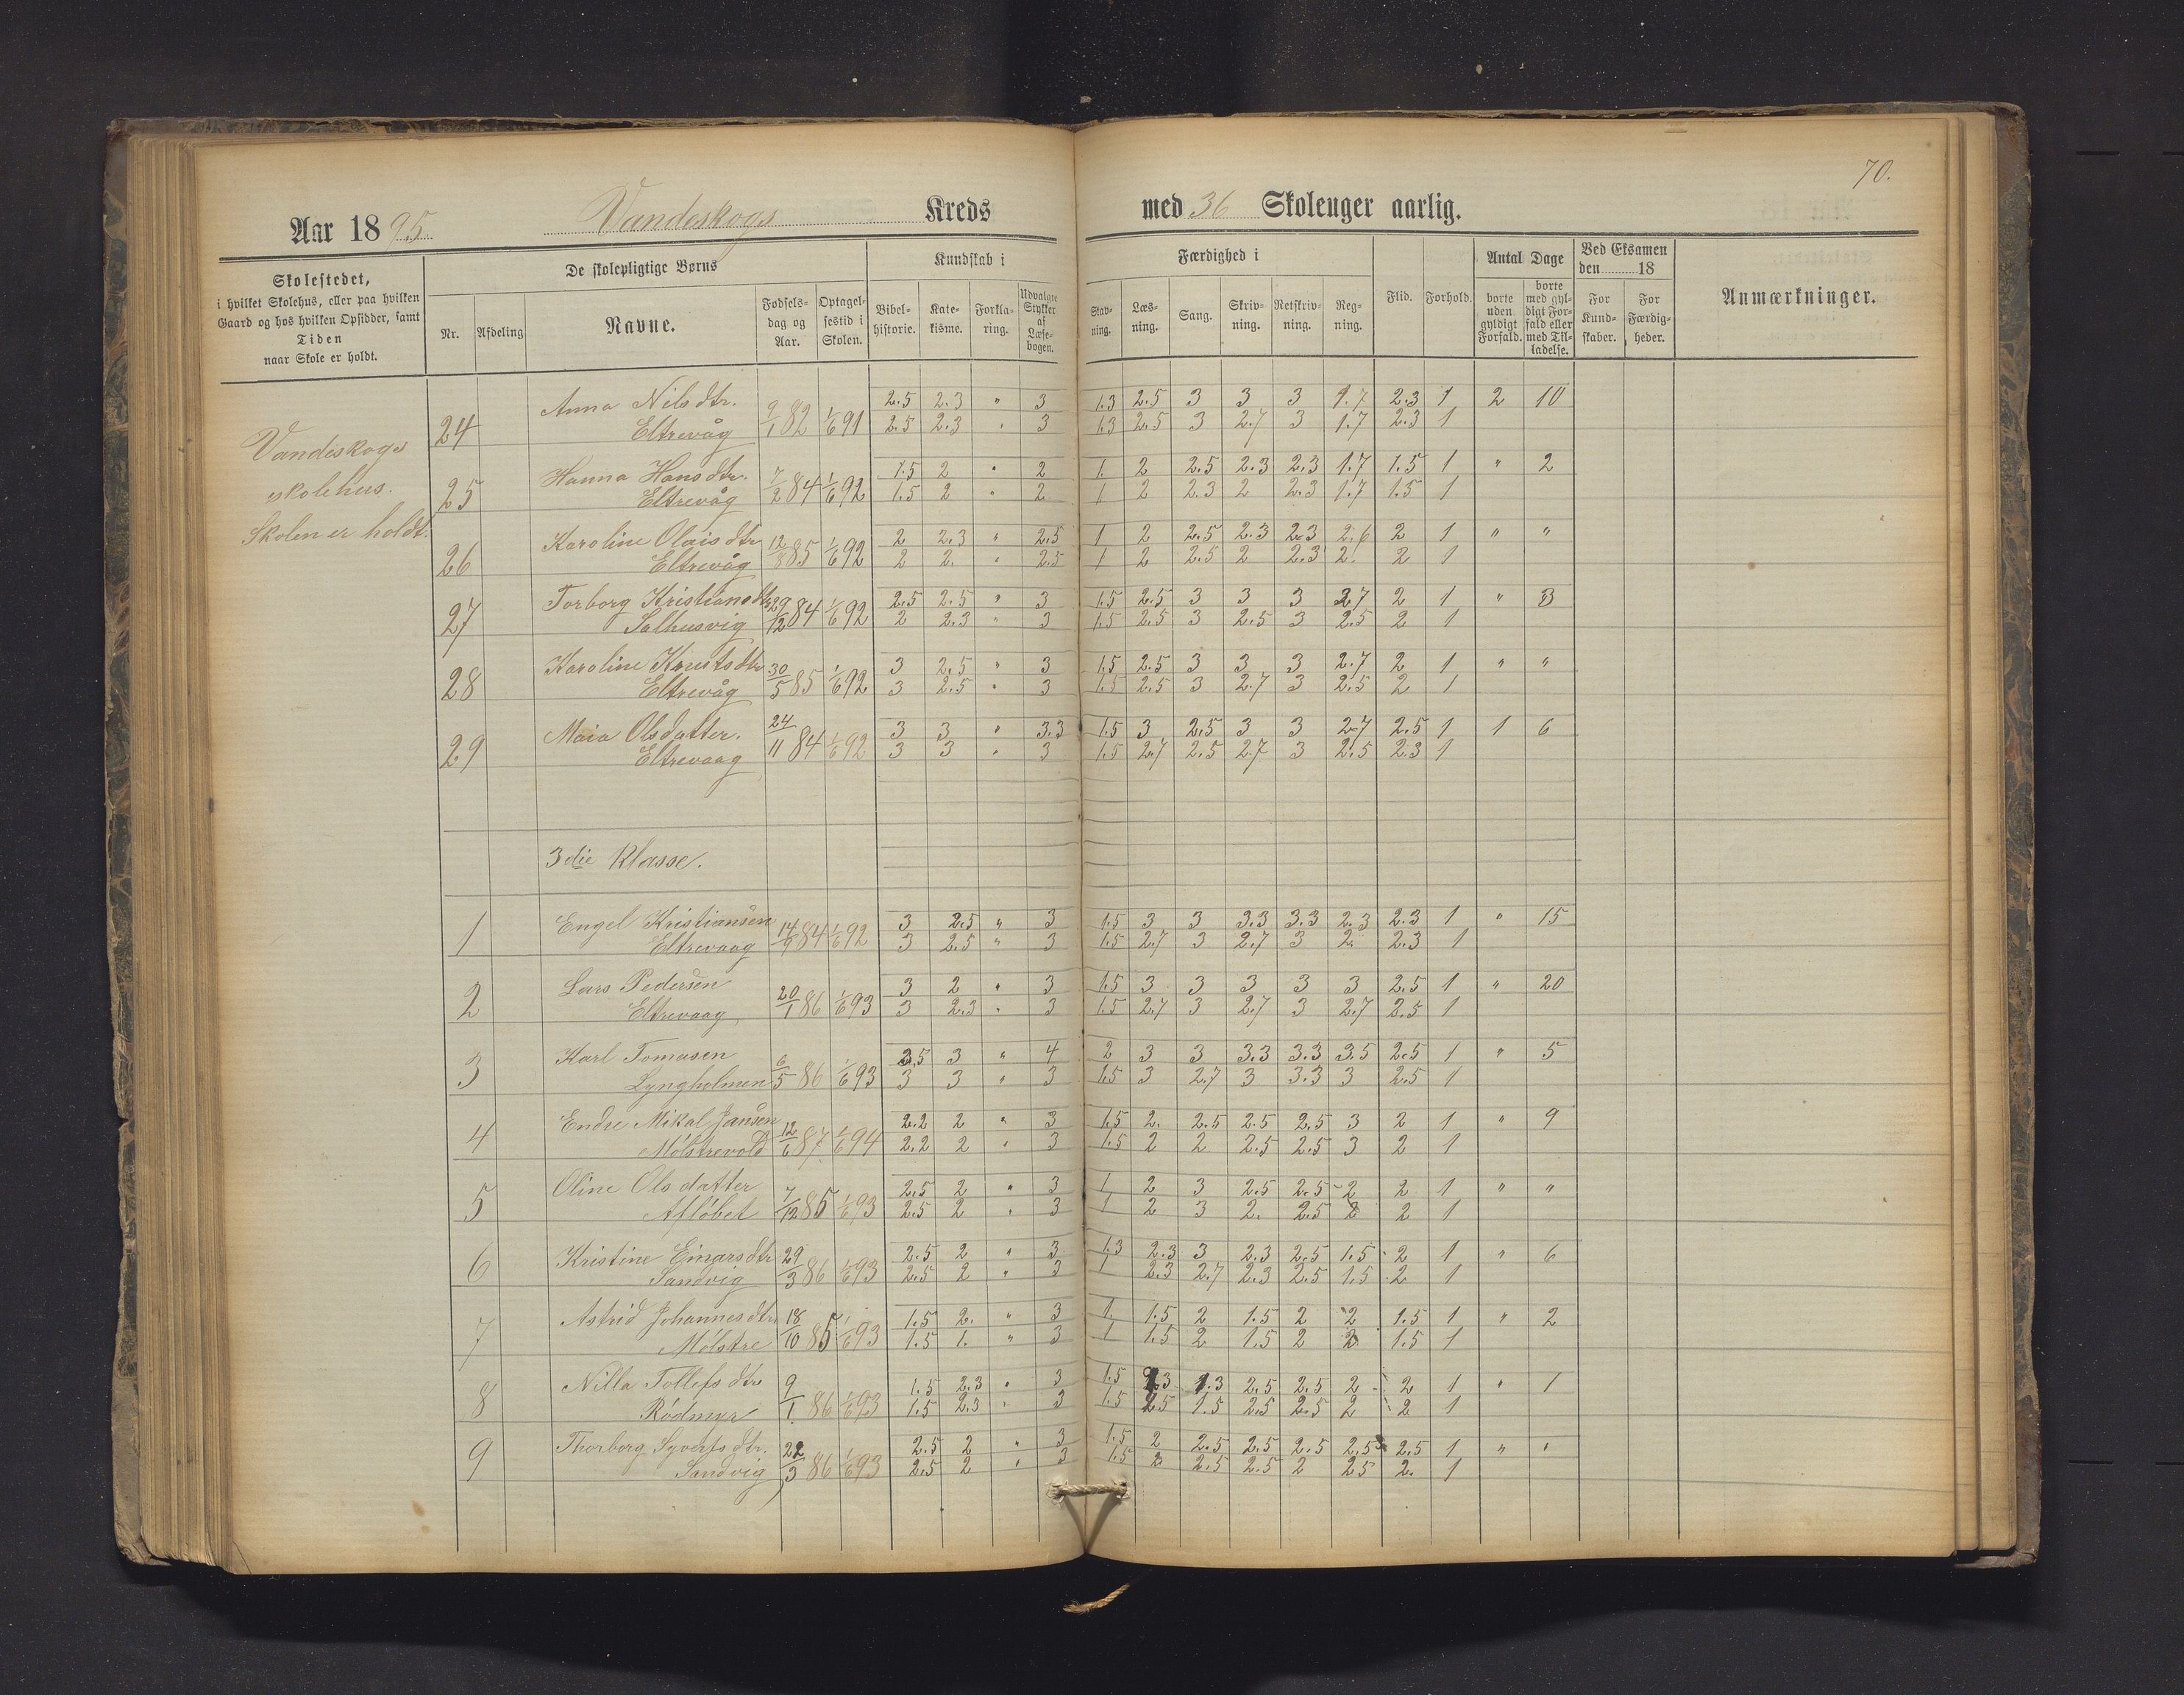 70.
Aar 1895. Vandeskogs Kreds med 36 Skoleuger aarlig.
Skolestedet, i hvilket Skolehus, eller paa hvilken Gaard og hos hvilken Opsidder, samt Tiden naar Skole er holdt.
De skolepligtige Børns
Nr. Afdeling Navne. Fødselsdag og Aar. Optagelsestid i Skolen.
Kundskab i
Bibelhistorie. Katekisme. Forklaring. Udvalgte Stykker af Læsebogen.
Færdighed i
Stavning. Læsning. Sang. Skrivning. Retskrivning. Regning.
Flid. Forhold.
Antal Dage
borte uden gyldigt Forfald. borte med gyldigt Forfald eller med Tilladelse.
Ved Eksamen den 18
For Kundskaber. For Færdigheder.
Anmærkninger.
Vandeskogs
skolehus.
Skolen er holdt.
24 Anna Nilsdtr. 9/1 82 1/6 91 2.5 2.3 " 3 1.3 2.5 3 3 3 1.7 2.3 1 2 10
Eltrevåg 2.5 2.3 " 3 1.3 2.5 3 2.7 3 1.7 2.3 1
25 Hanna Hansdtr. 7/2 84 1/6 92 1.5 2 " 2 1. 2 2.5 2.3 2.3 1.7 1.5 1 " 2
Eltrevåg 1.5 2 " 2 1 2 2.3 2 2.3 1.7 1.5 1
26 Karoline Olaisdtr 12/8 85 1/6 92 2 2.3 " 2.5 1 2 2.5 2.3 2.3 2 1 " "
Eltrevåg 2 2. " 2.5 1 2 2.5 2 2.3 2. 2 1
27 Torborg Kristiansdtr 29/12 84 1/6 92 2.5 2.5 " 3 1.5 2.5 3 3 3 2.7 2 1 " 3
Salhusvig 2 2.3 " 3 1.5 2.5 3 2.5 3 2.5 2 1
28 Karoline Knutsdtr 30/5 85 1/6 92 3 2.5 " 3 1.5 2.5 3 3 3 2.7 2 1 " "
Eltrevåg 3 2.5 " 3 1.5 2.5 3 2.7 3 2.5 2 1
29 Maia Olsdatter. 24/11 84 1/6 92 3 3 " 3.3 1.5 3 2.5 3 3 2.7 2.5 1 1 6
Eltrevaag 3 3 " 3 1.5 2.7 2.5 2.7 3 2.5 2.3 1
3die Klasse.
1 Engel Kristiansen 14/9 84 1/6 92 3 2.5 " 3 1.5 3 3 3.3 3.3 2.3 2.3 1 " 15
Eltrevaag 3 2.5 " 3 1.5 2.7 3 2.7 3 2. 2.3 1
2 Lars Pedersen 20/1 86 1/6 93 3 2 " 3 1.5 3 3 3 3 3 2.5 1 " 20
Eltrevaag 3 2.3 " 3 1.5 2.7 3 2.7 3 2.7 2.5 1
3 Karl Tomasen 6/5 86 1/6 93 3.5 3 " 4 2 3 3 3.3 3.3 3.5 2.5 1 " 5
Lyngholmen 3 3 " 3 1.5 3 2.7 3 3.3 3 2.5 1
4 Endre Mikal Jansen 12/6 87 1/6 94 2.2 2 " 3 1.5 2. 2.5 2.5 2.5 3 2 1 " 9
Mölstrevold 2.2 2 " 3 1.5 2 2 2.5 2.5 3 2 1
5 Oline Olsdatter 7/12 85 1/6 93 2.5 2 " 3 1 2 3 2.5 2.5 2 2 1 " "
Aflöbet 2.5 2 " 3 1 2 3 2. 2.5 2 2 1
6 Kristine Einarsdtr 29/3 86 1/6 93 2.5 2 " 3 1.3 2.3 3 2.3 2.5 1.5 2 1 " 6
Sandvig 2.5 2 " 3 1 2.3 2.7 2.3 2.5 1.5 2 1
7 Astrid Johannesdtr 18/10 85 1/6 93 1.5 2. " 3 1. 1.5 2 1.5 2 2 1.5 1 " 2
Mölstre 1.5 1. " 3 1 1.5 2 1.5 2 2 1.5 1
8 Nilla Tollefsdtr 9/1 86 1/6 93 1.5 2.3 " 3 1.5 2.3 1.3 2.5 2.5 2 2 1 " 1
Rödmyr 1.5 2.3 " 3 1.5 2.5 1.5 2.5 2.5 2 2 1
9 Thorborg Syvertsdtr. 22/3 86 1/6 93 2.5 2 " 3 1.5 2 2.5 2.5 2.5 2.5 2.5 1 " "
Sandvig 2.5 2 " 3 1.5 2 2.5 2.5 2 2.5 2. 1